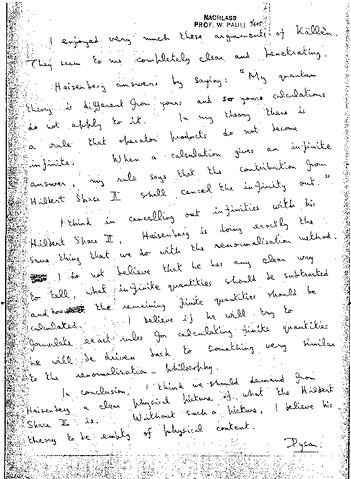 NACHLASS
PROF. W. PAULI
I enjoyed very much these arguments of Källén.
They seem to me completely clear and penetrating.
Heisenberg answers by saying: "My quantum
theory is different from yours and so yours calculations
do not apply to it. In my theory there is
a rule that operator products do not become
infinite. When a calculation gives an infinite
answer, my rule says that the contribution from
Hilbert Space II shall cancel the infinity out."
I think in cancelling out infinities with his
Hilbert Space II, Heisenberg is doing exactly the
same thing that we do with the renormalisation method.
I do not believe that he has any clear way
to tell, what infinite quantities should be subtracted
and how the remaining finite quantities should be
calculated. I believe if he will try to
formulate exact rules for calculating finite quantities
he will be driven back to something very similar
to the renormalisation philosophy.
In conclusion, I think we should demand from
Heisenberg a clear physical picture of what the Hilbert
Space II is. Without such a picture, I believe his
theory to be empty of physical content.
Dyson.